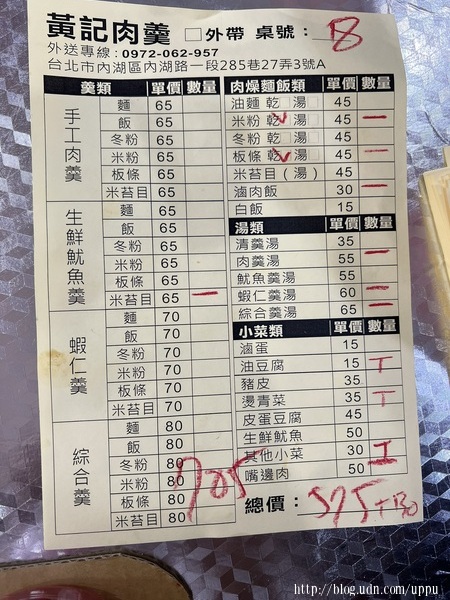 黃記肉羹 □外帶 桌號：B
外送專線：0972-062-957
台北市內湖區內湖路一段285巷27弄3號A
羹類 單價 數量
手工肉羹
麵 65
飯 65
冬粉 65
米粉 65
板條 65
米苔目 65
生鮮魷魚羹
麵 65
飯 65
冬粉 65
米粉 65
板條 65
米苔目 65 一
蝦仁羹
麵 70
飯 70
冬粉 70
米粉 70
板條 70
米苔目 70
綜合羹
麵 80
飯 80
冬粉 80
米粉 80
板條 80
米苔目 80
肉燥麵飯類 單價 數量
油麵 乾□湯□ 45
米粉 乾✓湯□ 45 一
冬粉 乾□湯□ 45
板條 乾✓湯□ 45 一
米苔目（湯） 45
滷肉飯 30 一
白飯 15
湯類 單價 數量
清羹湯 35
肉羹湯 55 一
魷魚羹湯 55
蝦仁羹湯 60 一
綜合羹湯 65 一
小菜類 單價 數量
滷蛋 15
油豆腐 15 T
豬皮 35
燙青菜 35 T
皮蛋豆腐 45
生鮮魷魚 50
其他小菜 30 工
嘴邊肉 50
705
總價：575+130
http://blog.udn.com/uppu